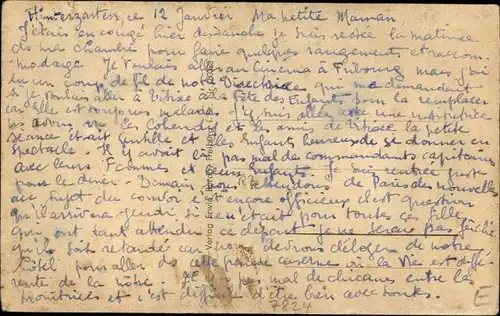 Hinterzarten, ce 12 Janvier Ma petite Maman,
J'étais en congé hier dimanche je suis restée la matinée
de ma chambre pour faire quelques rangement et raccom-
modage. Je voulais aller au Cinéma à Fribourg mais j'ai
eu un coup de fil de notre Directrice qui me demandait
si je voulais aller à la fête des Enfants pour la remplacer
car elle est toujours malade. J'y suis allée avec une
nous avons vu les et les amis de la petite
séance était gentille et les Enfants heureux de se donner en
spectacle. Il y avait pas mal de commandants capitaines
avec leurs Femmes et leurs Enfants. Je suis rentrée juste
pour le dîner. Demain nous attendons de Paris des nouvelles
au sujet du convoi c'est encore officieux c'est question
qu'il arrivera jeudi, si c'était pour toutes ces filles
qui ont tant attendu ce départ je ne serai pas fâchée
qu'il soit retardé car nous devrons déloger de notre
hôtel pour aller de cette caserne où la Vie est diffé-
rente de la nôtre. pas mal de chicanes entre les
et c'est difficile d'être bien avec toutes.
Verlag Ernst
7824
E